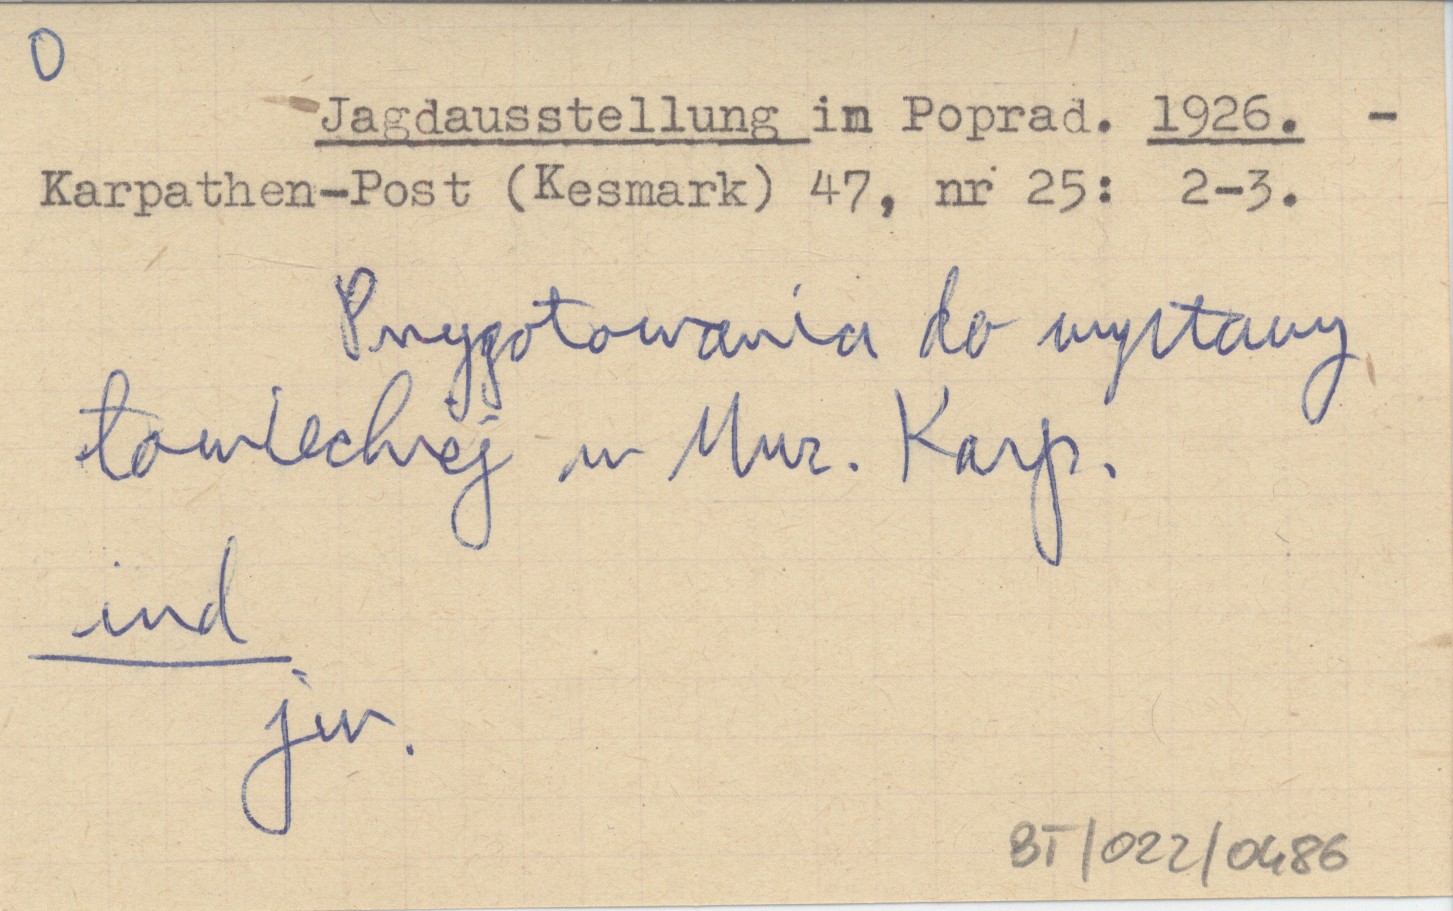 O
Jagdausstellung in Poprad. 1926. -
Karpathen-Post (Kesmark) 47, nr 25: 2-3.
Przygotowania do wystawy
łowieckiej w Muz. Karp.
ind
jw.
BT/022/0486